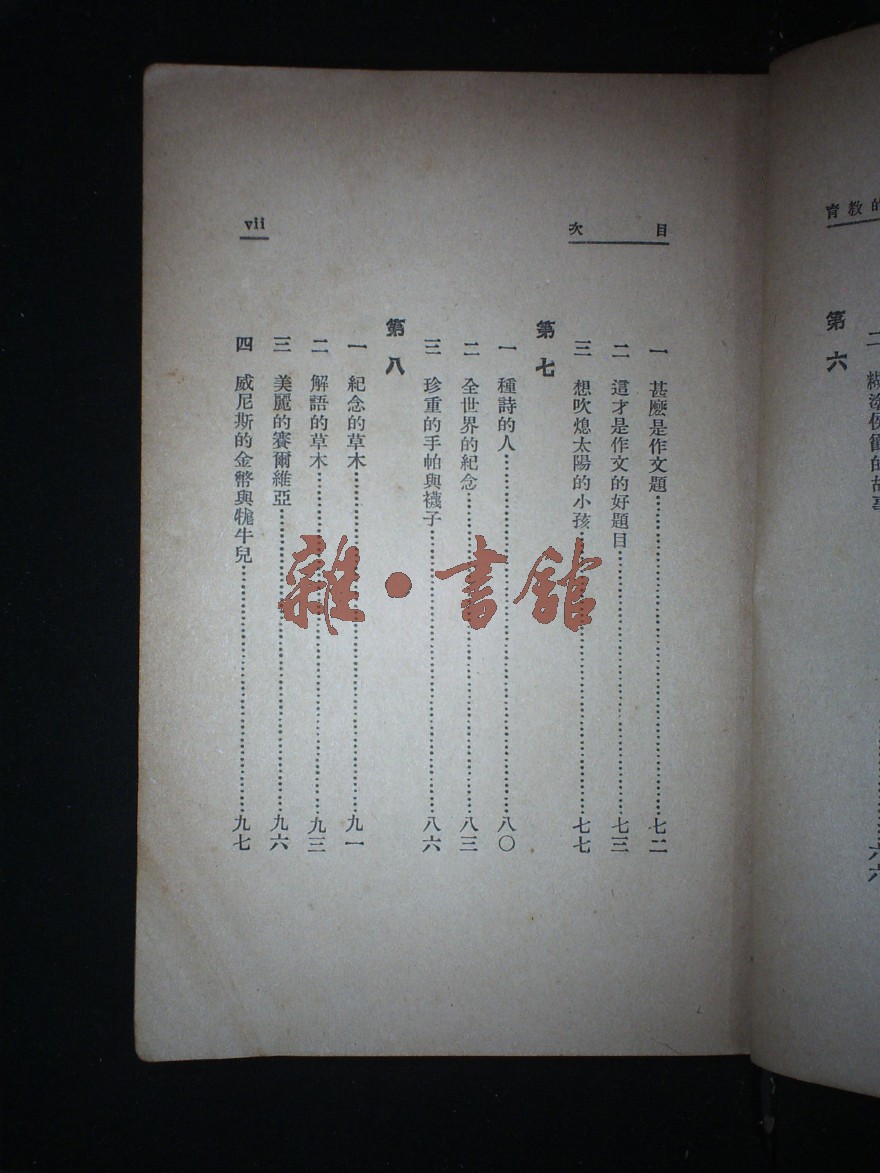 育教的
第六
二 糊塗侯爵的故事……六六
目次
vii
一 甚麽是作文題……七二
二 這才是作文的好題目……七三
三 想吹熄太陽的小孩……七七
第七
一 種詩的人……八〇
二 全世界的紀念……八三
三 珍重的手帕與襪子……八六
第八
一 紀念的草木……九一
二 解語的草木……九三
三 美麗的賽爾維亞……九六
四 威尼斯的金幣與牝牛兒……九七
雜·書館